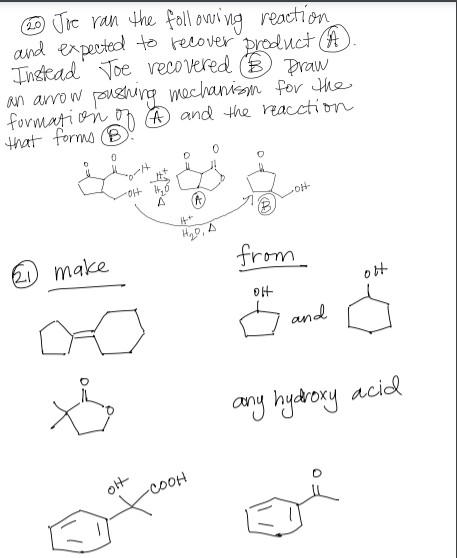 20 Joe ran the following reaction
and expected to recover product A.
Instead Joe recovered B Draw
an arrow pushing mechanism for the
formation of A and the reacction
that forms B.
O O O-H OH
H+
H2O
Δ
O O O
A
O OH
B
H+
H2O, Δ
21 make from
OH and OH
O O any hydroxy acid
OH COOH O